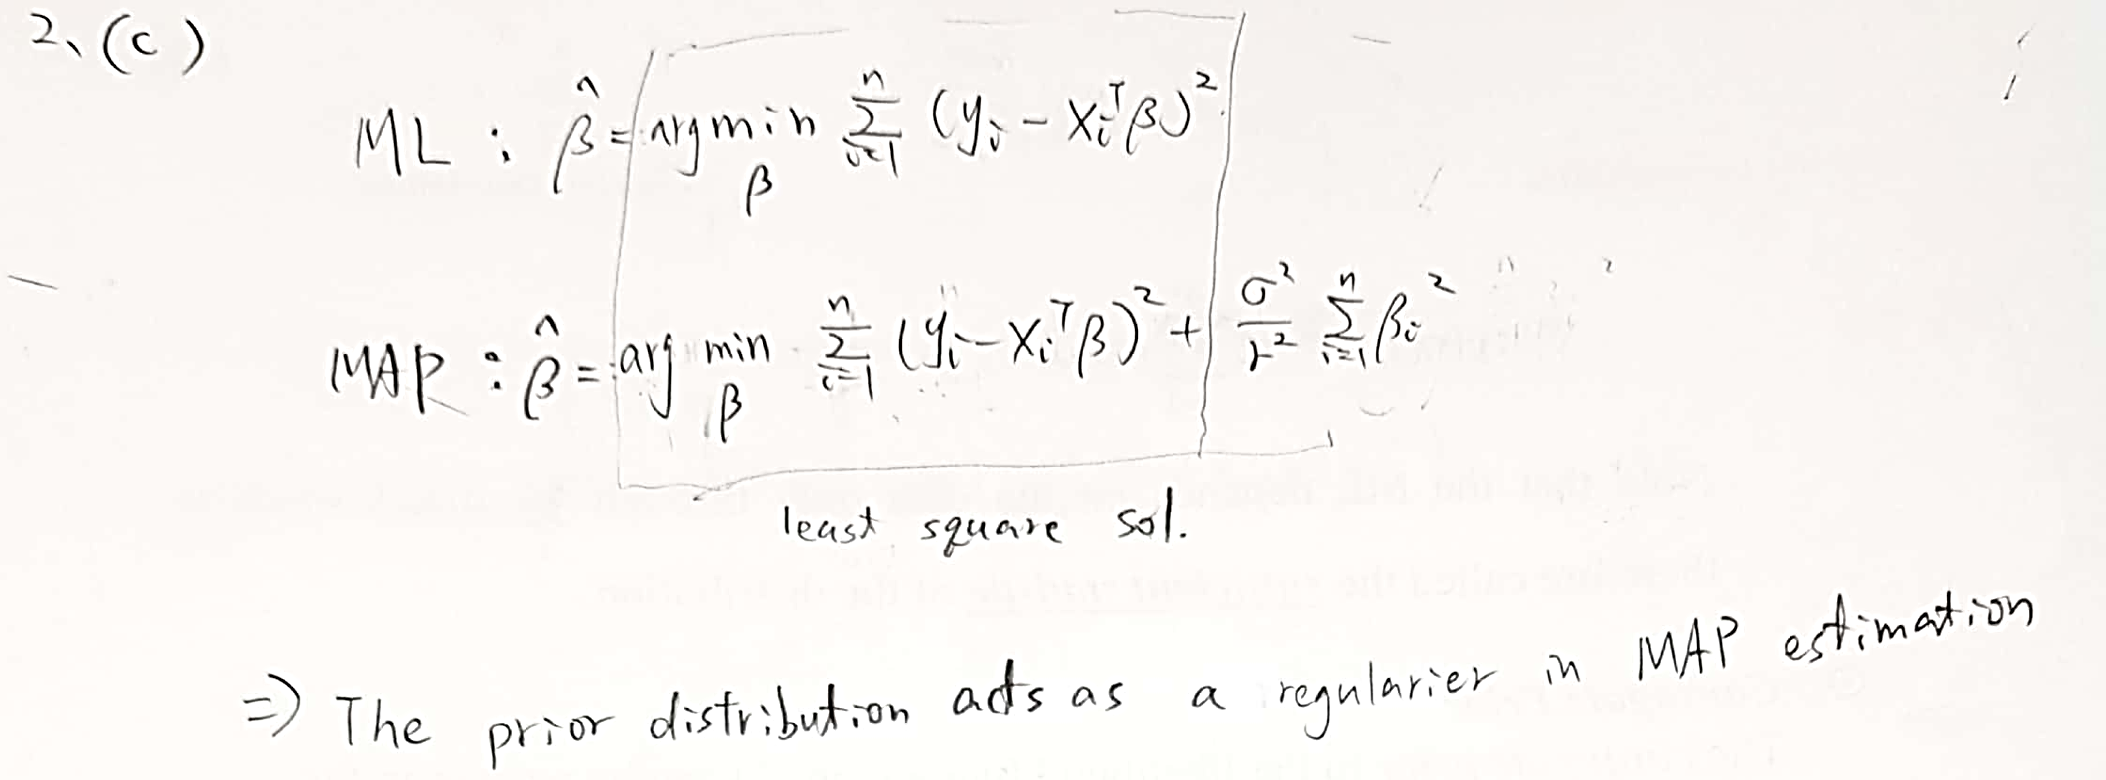 2、(c)
ML : β̂ = argmin_β Σ_{i=1}^{n} (y_i − x_i^T β)^2
MAP : β̂ = arg min_β Σ_{i=1}^{n} (y_i − x_i^T β)^2 + σ^2/r^2 Σ_{i=1}^{n} β_i^2
least square sol.
⇒ The prior distribution acts as a regularier in MAP estimation